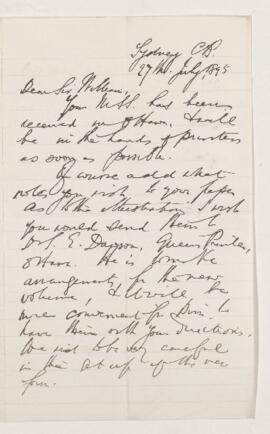 Sydney C.B.
27th July 1895
Dear Sir William,
Your MSS. has been
received in Ottawa, & will
be in the hands of printers
as soon as possible.
Of course add what
notes you wish to your paper.
As to the illustrations I wish
you would send them to
Dr S. E. Dawson, Queen's Printer,
Ottawa. He is to make
arrangements for the new
volume, & it will be
more convenient for him to
have them with your directions.
We wish to be very careful
in the get up of the new
form.